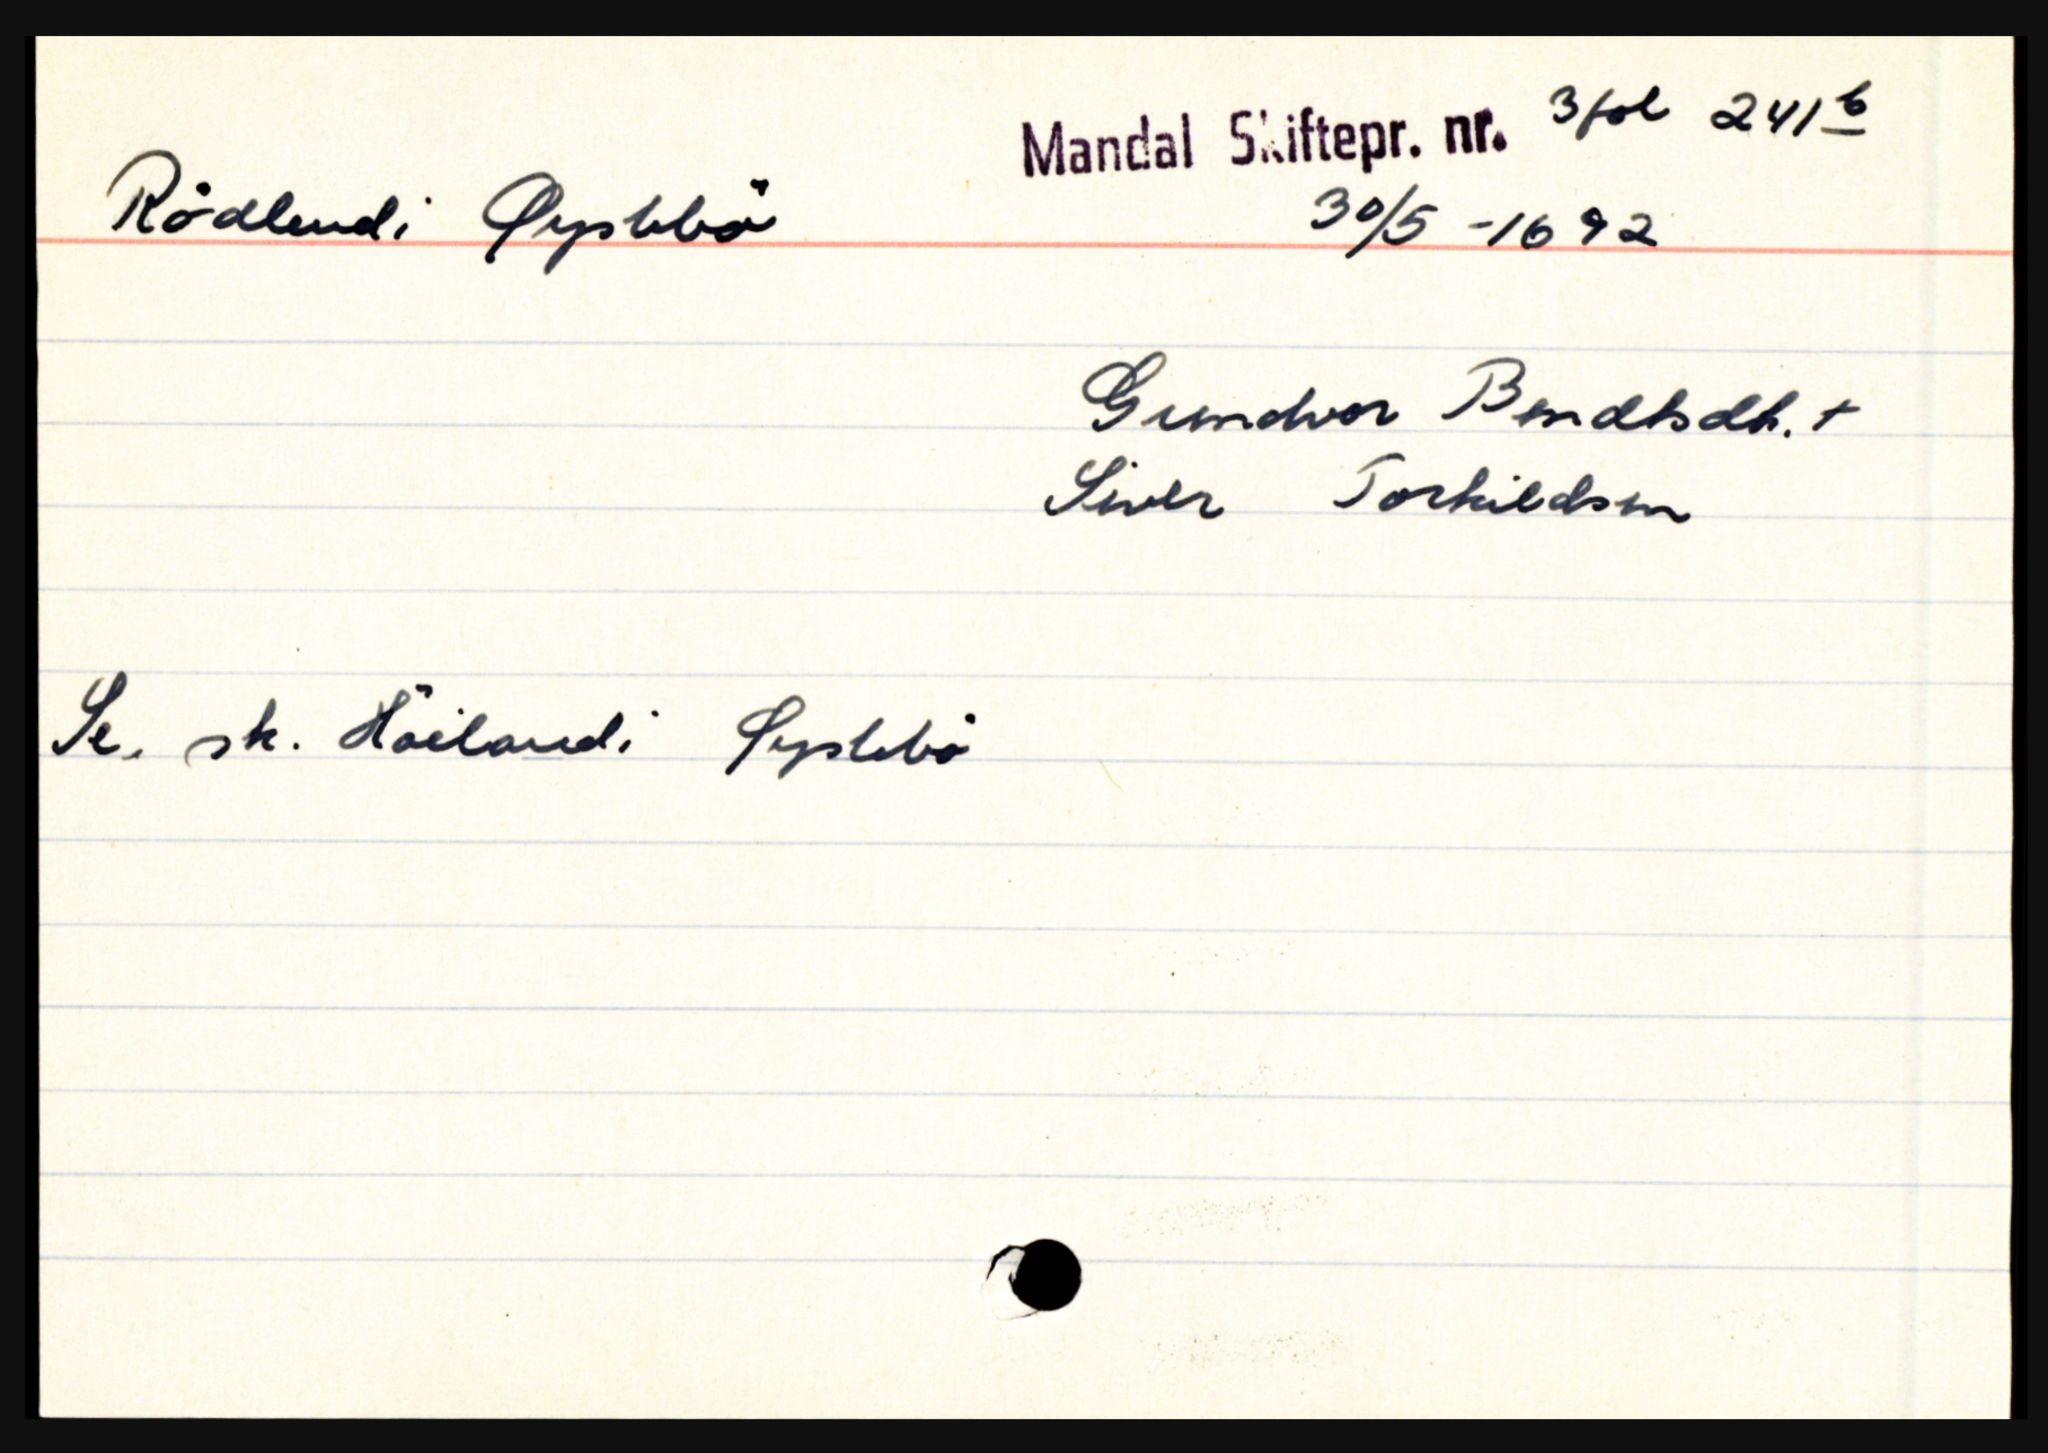 Mandal Skiftepr. nr. 3 fol 241b
Rödlandi Øyslebö
30/5 -1692
Gundvor Bendtsdt. +
Siver Torkildsen
Se. sk. Höilandi Øyslebö